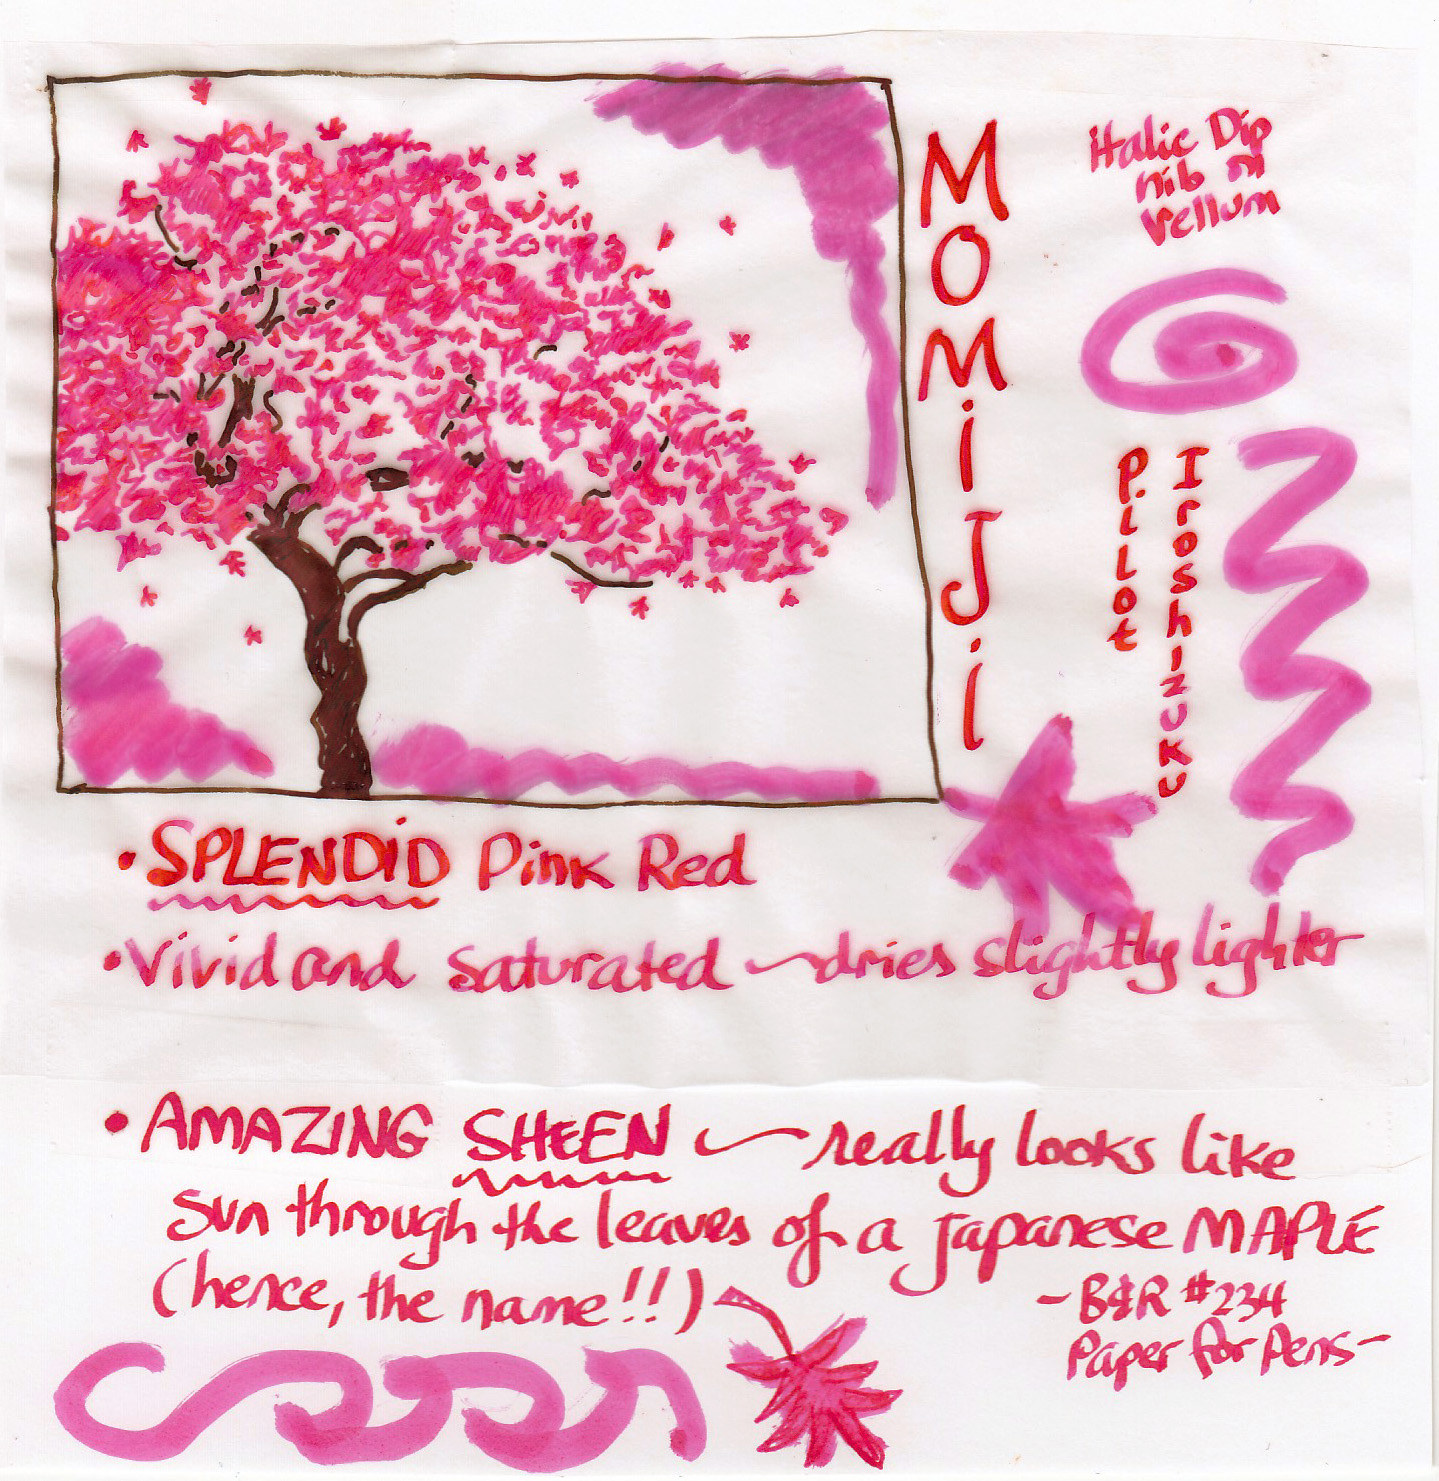 MOMiJi
italic Dip
nib on
vellum
Pilot
Iroshizuku
• SPLENDiD Pink Red
• Vivid and saturated ~ dries slightly lighter
• AMAZING SHEEN ~ really looks like
sun through the leaves of a Japanese MAPLE
(hence, the name!!)
- B&R #234
Paper for Pens -